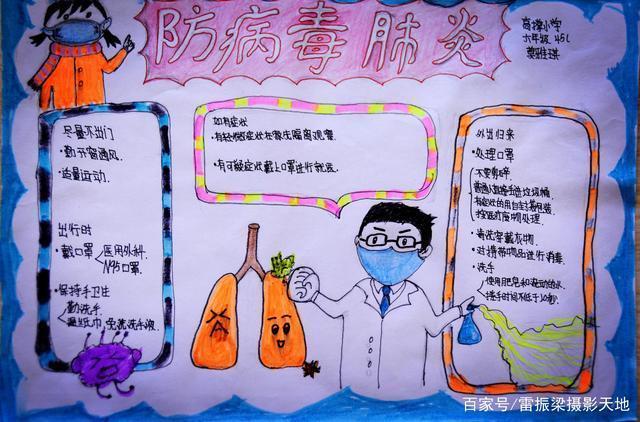 防病毒肺炎
六年级 451
尽量不出门
·勤开窗通风.
·适量运动.
出行时
·戴口罩
医用外科
N95口罩.
·保持手卫生
勤洗手.
湿纸巾,免洗洗手液.
如有症状
·有轻微症状在家庄隔离观察.
·有可疑症状戴上口罩进行就医.
外出归来
·处理口罩
不要剪碎
有症状的用自封袋包装.
按医疗废物处理.
·清洗穿戴衣物.
·对携带物品进行消毒.
·洗手
使用肥皂和流动的水.
搓手时间不低于10秒.
百家号/雷振梁摄影天地